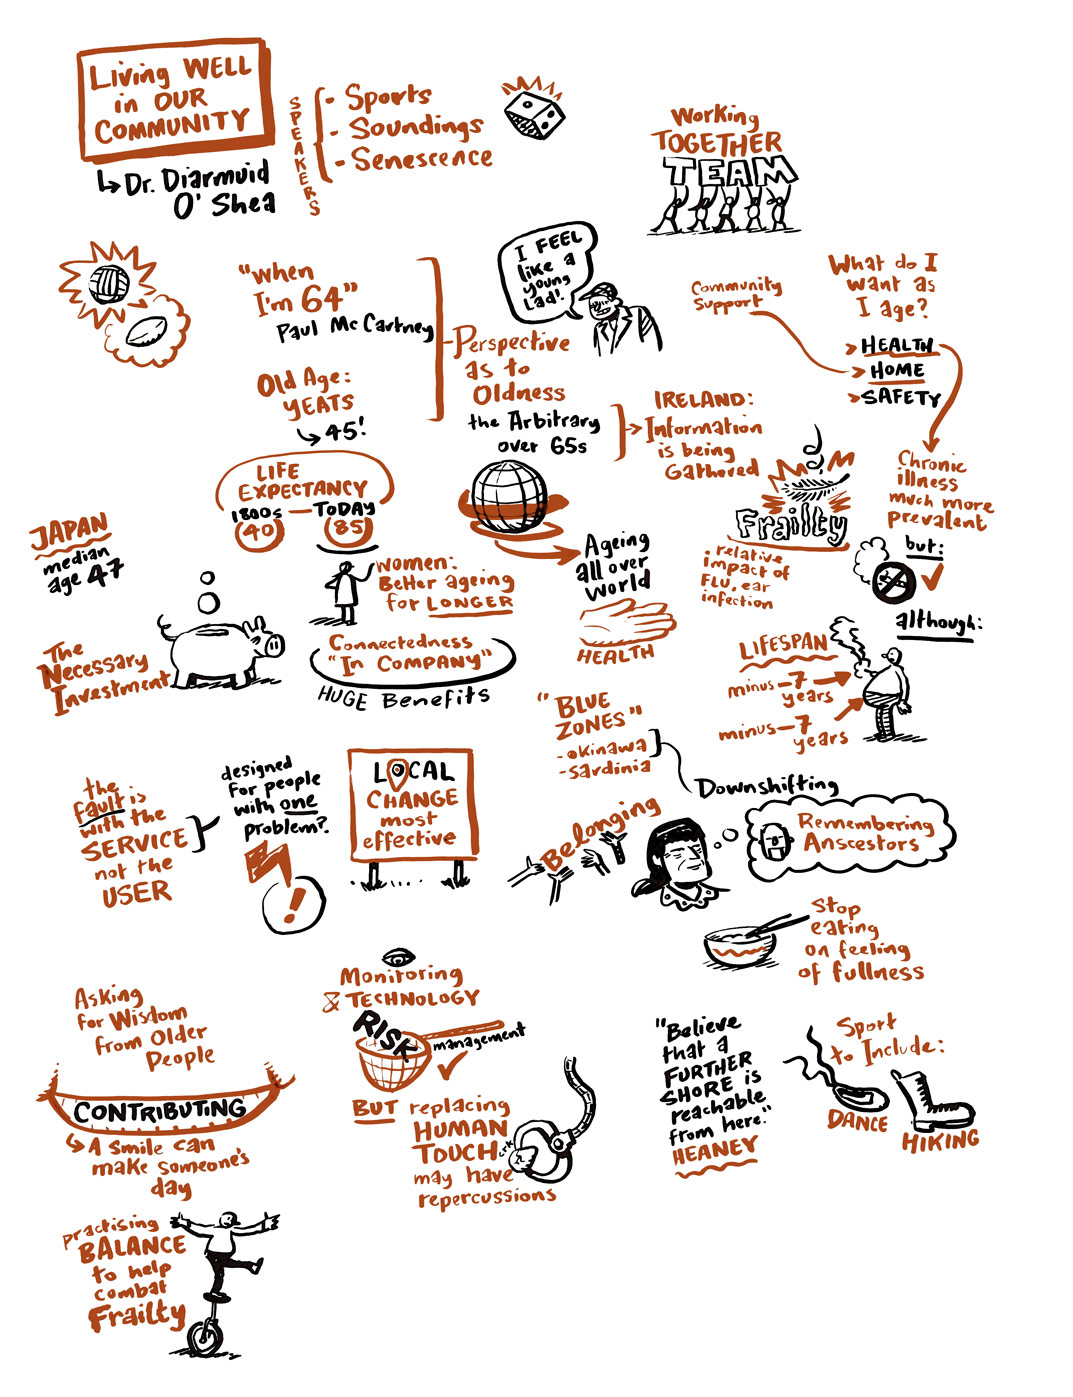 Living WELL
in OUR
COMMUNITY
Dr. Diarmuid
O' Shea
SPEAKERS
- Sports
- Soundings
- Senescence
Working
TOGETHER
TEAM
"when
I'm 64"
Paul McCartney
Old Age:
YEATS
45!
Perspective
as to
Oldness
the Arbitrary
over 65s
I FEEL
like a
young
Lad!
IRELAND:
Information
is being
Gathered
Community
Support
What do I
want as
I age?
HEALTH
HOME
SAFETY
Chronic
illness
much more
prevalent
but:
although:
LIFESPAN
minus - 7
years
minus - 7
years
Frailty
relative
impact of
FLU, ear
infection
LIFE
EXPECTANCY
1800s — TODAY
40 85
JAPAN
median
age 47
women:
Better ageing
for LONGER
Ageing
all over
world
HEALTH
The
Necessary
Investment
Connectedness
"In COMPANY"
HUGE Benefits
"BLUE
ZONES"
- Okinawa
- Sardinia
Downshifting
Belonging
Remembering
Anscestors
Stop
eating
on feeling
of fullness
the
fault is
with the
SERVICE
not the
USER
designed
for people
with one
problem?.
!
LOCAL
CHANGE
most
effective
Asking
for Wisdom
from Older
People
CONTRIBUTING
A smile can
make someone's
day
Monitoring
& TECHNOLOGY
RISK
management
BUT replacing
HUMAN
TOUCH
may have
repercussions
"Believe
that a
FURTHER
SHORE is
reachable
from here."
HEANEY
Sport
to Include:
DANCE
HIKING
practising
BALANCE
to help
combat
Frailty